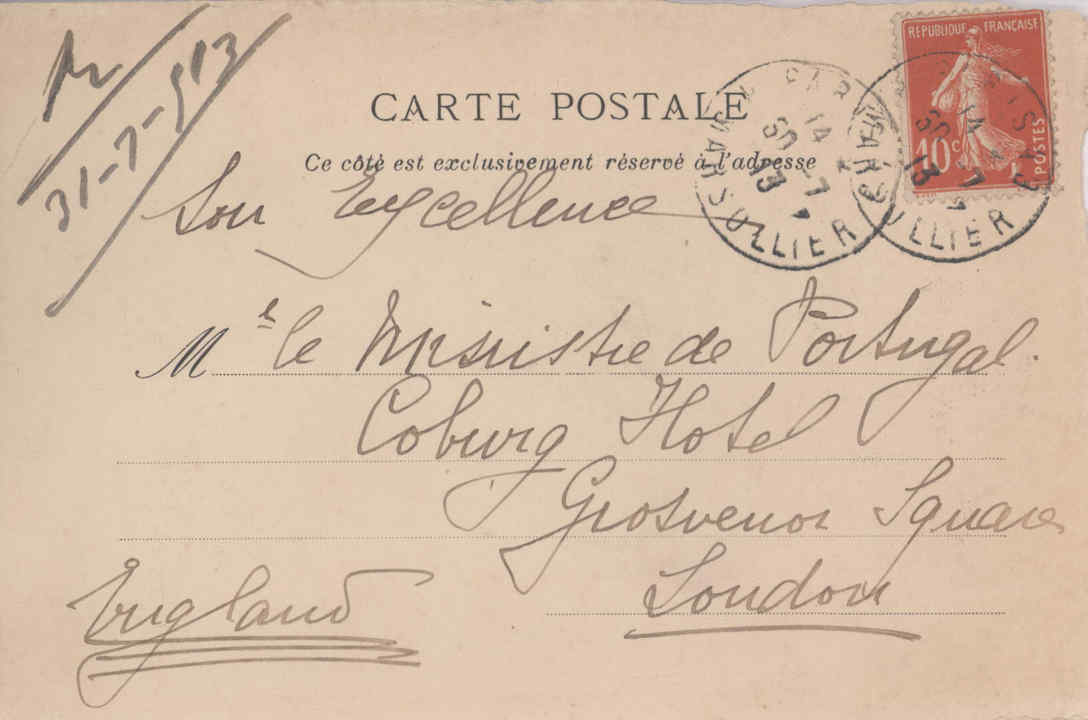 R
31-7-913
CARTE POSTALE
Ce côté est exclusivement réservé à l'adresse
RÉPUBLIQUE FRANÇAISE
10c
POSTES
PARIS
14
30 7
13
MARSOLLIER
PARIS
14
30 7
13
MARSOLLIER
Son Excellence
Mr le Ministre de Portugal.
Coburg Hotel
Grosvenor Square
London
England